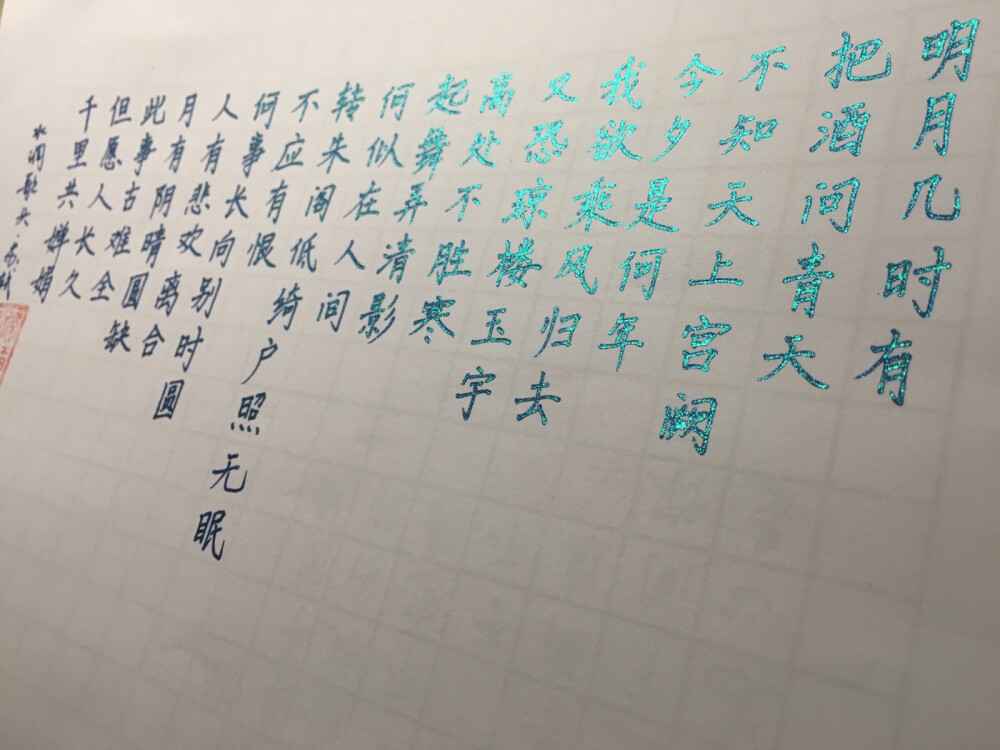 明月几时有
把酒问青天
不知天上宫阙
今夕是何年
我欲乘风归去
又恐琼楼玉宇
高处不胜寒
起舞弄清影
何似在人间
转朱阁低绮户照无眠
不应有恨
何事长向别时圆
人有悲欢离合
月有阴晴圆缺
此事古难全
但愿人长久
千里共婵娟
水调歌头·苏轼